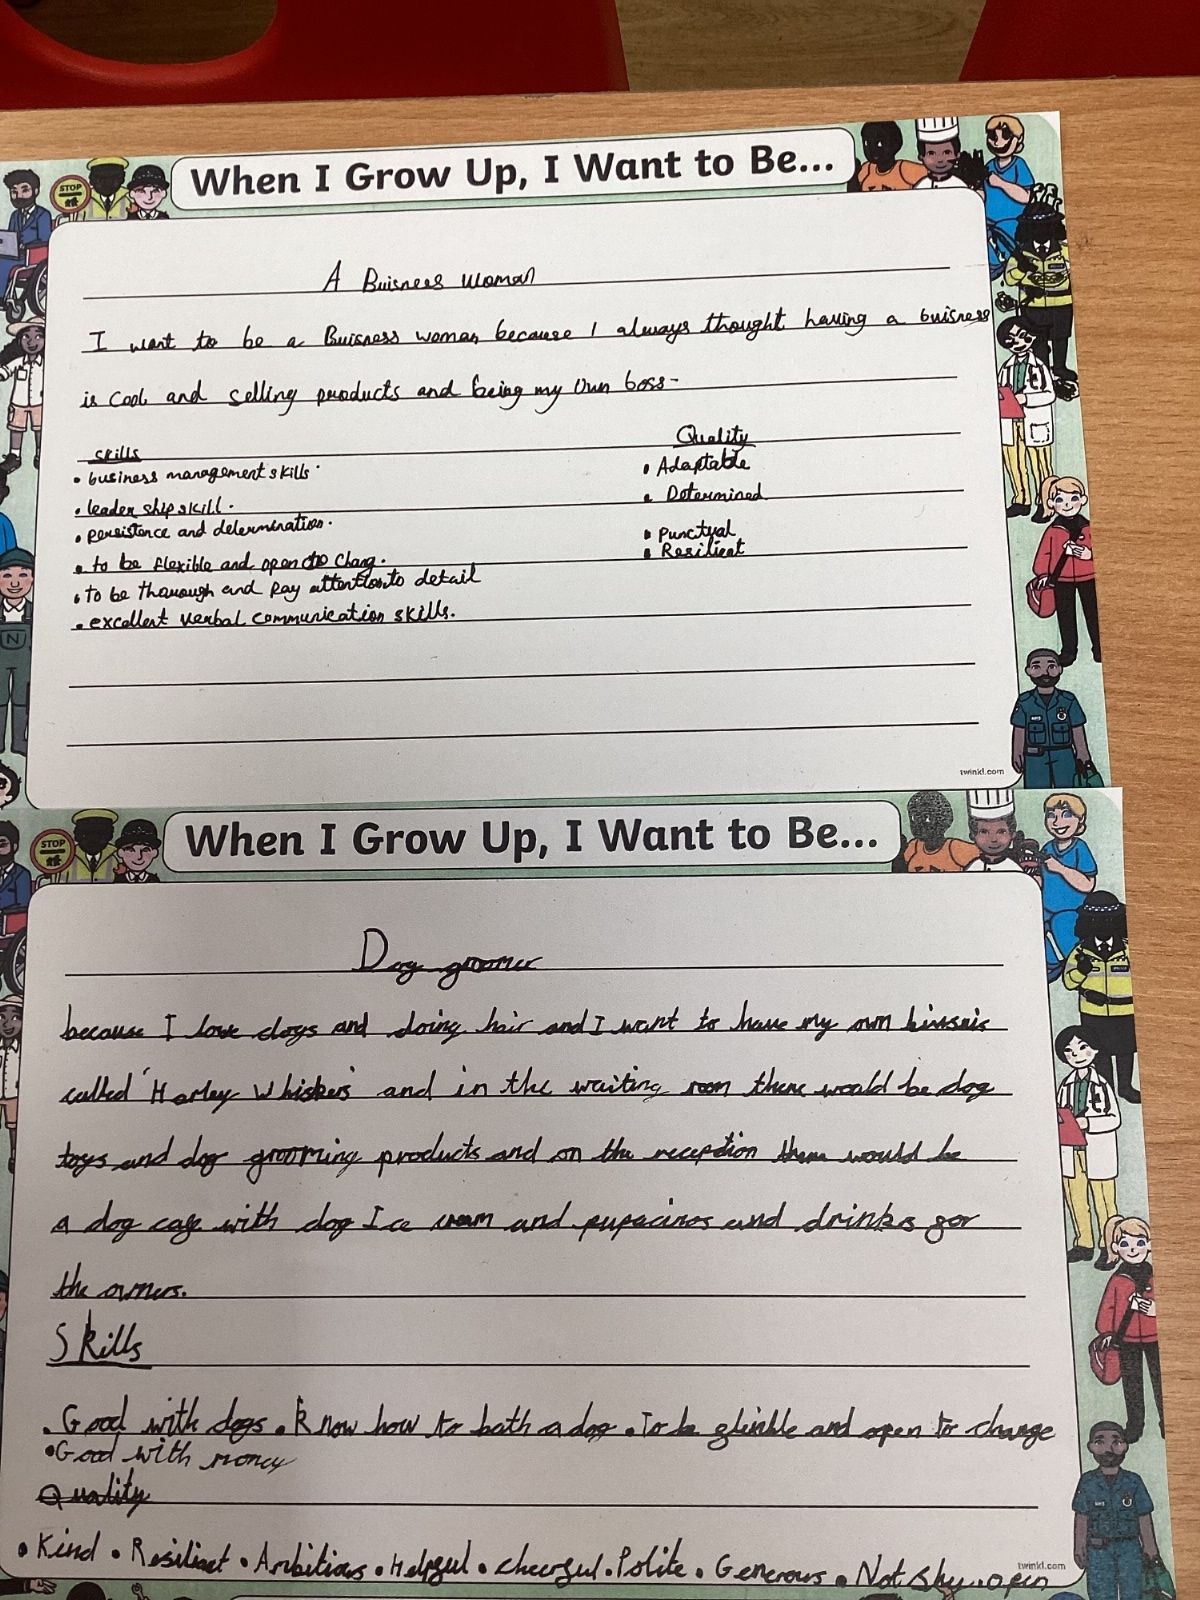 STOP
When I Grow Up, I Want to Be...
A Buisness Woman
I want to be a Buisness woman because I always thought having a buisness
is cool and selling products and being my own boss-
Skills
Quality
• business management skills.
• Adaptable
• leader ship skill.
• Determined
• persistence and determination.
• Punctual
• to be flexible and open to chang.
• Resilient
• to be thorough and pay attention to detail
• excellent verbal communication skills.
N
twinkl.com
STOP
When I Grow Up, I Want to Be...
Dog groomer
because I love dogs and doing hair and I want to have my own
called 'Harley Whiskers' and in the waiting room there would be dog
toys and dog grooming products and on the reception there would be
a dog cafe with dog Ice cream and pupacinos and drinks for
the owners.
Skills
• Good with dogs • Know how to bath a dog • To be and open to change
• Good with money
Quality
• Kind • Resilient • Ambitious • Helpful • cheerful • Polite • Generous • Not shy.. open
twinkl.com